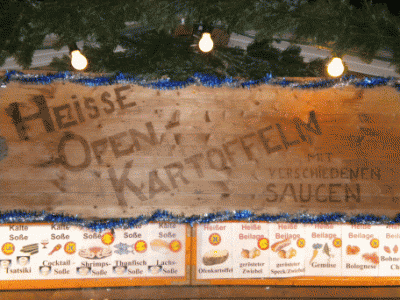 HEISSE
OFEN-
KARTOFFELN
MIT
VERSCHIEDENEN
SAUCEN
Kalte Soße Kalte Soße Kalte Soße Kalte Soße Kalte Soße Heißer Heiße Beilage Heiße Beilage Heiße Beilage Heiße Beilage
Tsatsiki Cocktail-Soße Shrimps-Soße Thunfisch-Soße Lachs-Soße Ofenkartoffel gerösteter Zwiebel gerösteter Speck/Zwiebel Gemüse Bolognese